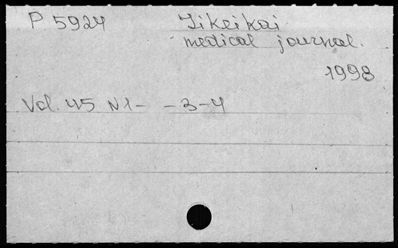 P 5924 Jikeikai
medical journal.
1998
Vol. 45 N1- -3-4